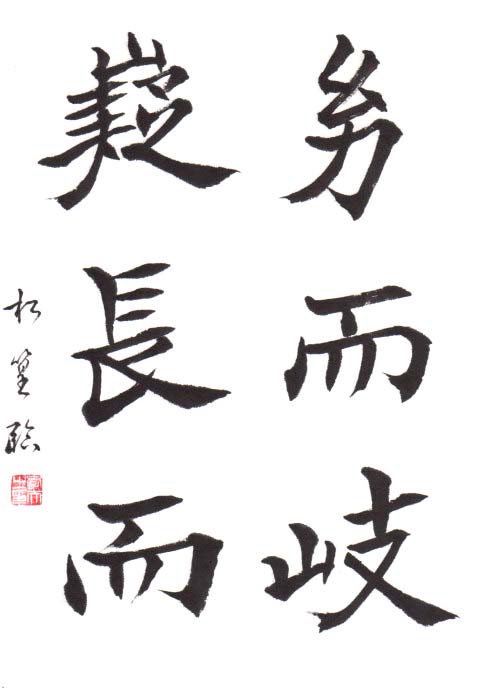 幼而岐
嶷長而
松篁臨